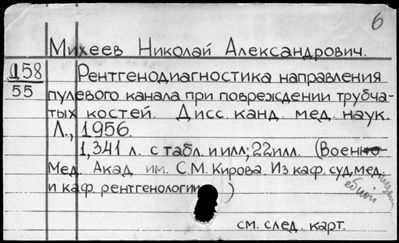 6
Михеев Николай Александрович.
Д58
55
Рентгенодиагностика направления
пулевого канала при повреждении трубча-
тых костей. Дисс. канд. мед. наук.
Л., 1956.
1,341 л. с табл. и илл; 22илл. (Военно-
Мед. Акад. им. С.М. Кирова. Из каф. суд. мед.
и каф. рентгенологии )
см. след. карт.